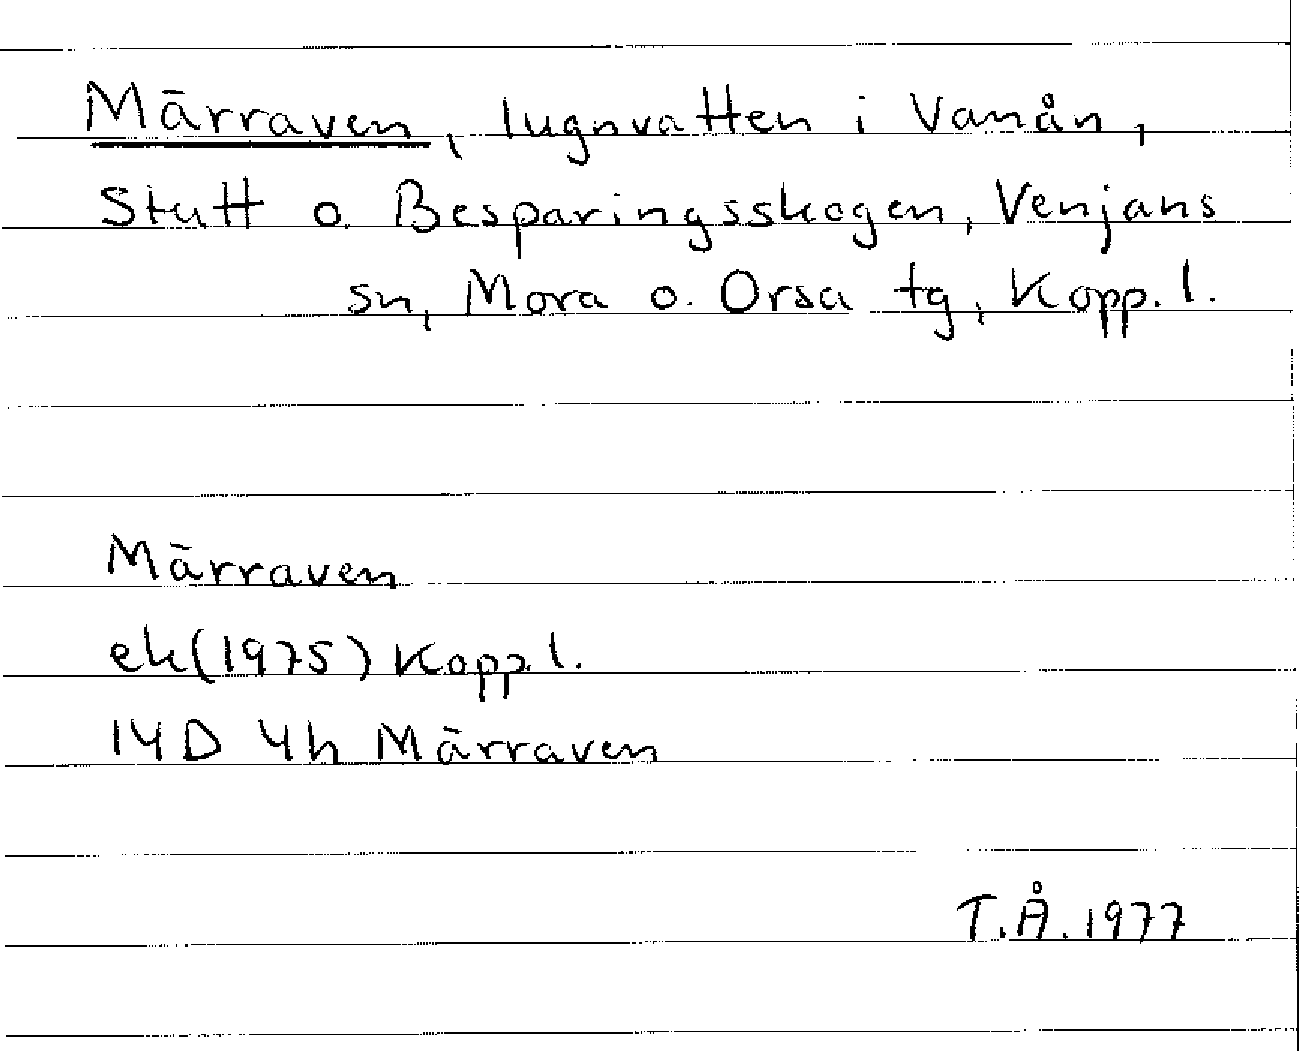 Märraven, lugnvatten i Vanån,
Stutt o. Besparingsskogen, Venjans
sn, Mora o. Orsa tg, Kopp. l.
Märraven
ek (1975) Kopp. l.
14D 4h Märraven
T.Å. 1977